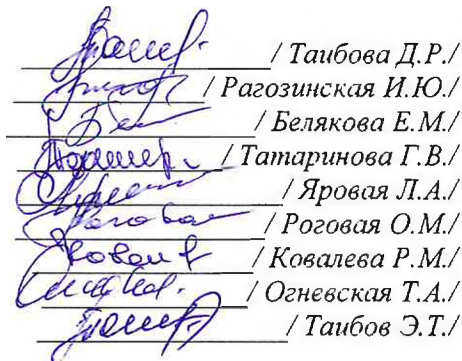 / Таибова Д.Р./
/ Рагозинская И.Ю./
/ Белякова Е.М./
/ Татаринова Г.В./
/ Яровая Л.А./
/ Роговая О.М./
/ Ковалева Р.М./
/ Огневская Т.А./
/ Таибов Э.Т./